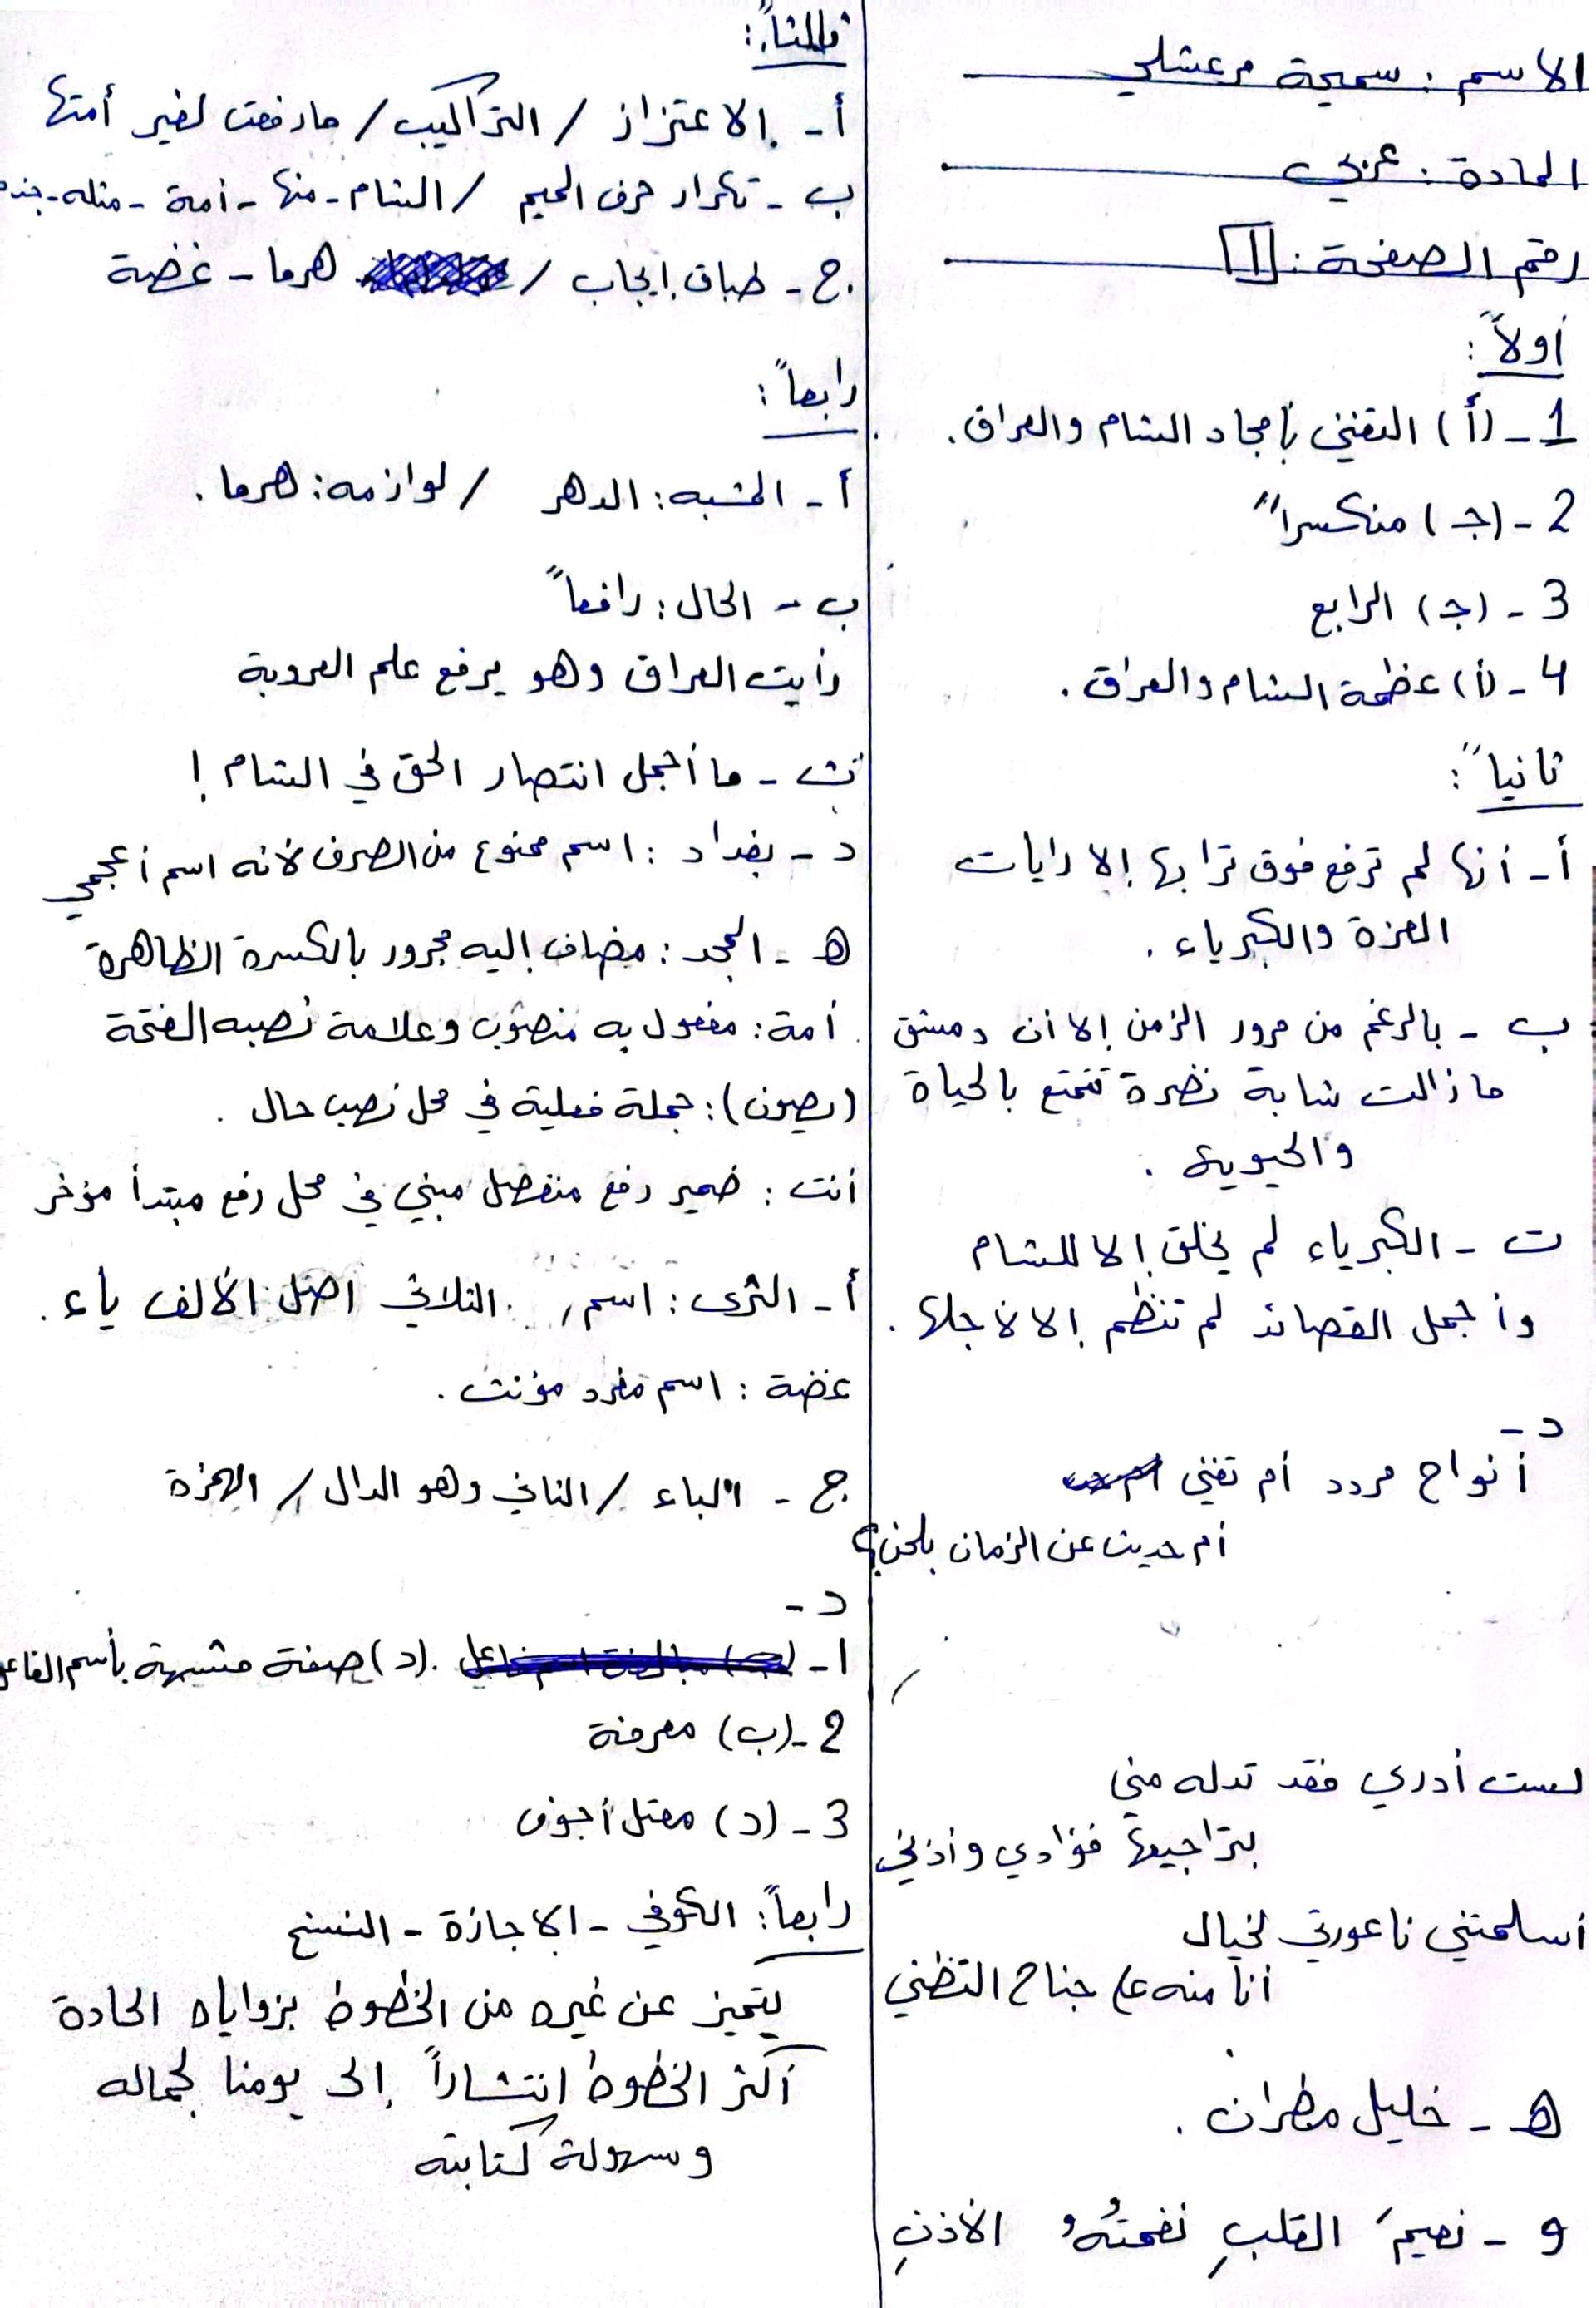 الاسم : سميحة مرعشلي
المادة : عربي
رقم الصفحة : 1
أولاً :
1 - (أ) التغني بأمجاد الشام والعراق .
2 - (جـ) منكسراً
3 - (جـ) الرابع
4 - (أ) عظمة الشام والعراق .
ثانياً :
أ - أنها لم ترفع فوق ترابها إلا رايات
العزة والكبرياء .
ب - بالرغم من مرور الزمن إلا أن دمشق
مازالت شابة نضرة تتمتع بالحياة
والحيوية .
ت - الكبرياء لم يخلق إلا للشام
وأجمل القصائد لم تنظم إلا لأجلها .
د -
أنواح مردد أم تغني
أم حديث عن الزمان بلحن ؟
لست أدري فقد تدله مني
بتراجيعها فؤادي وأذني
أسلمتني ناعورتي لخيال
أنا منه على جناح التظني
هـ - خليل مطران .
و - نعيمَ القلبِ نغمتُهُ الأذنِ
ثالثاً :
أ - الاعتزاز / التراكيب / مادفعت لغير أمتها
ب - تكرار حرف الميم / الشام - منها - أمة - مثله -
ج - طباق إيجاب / هرما - غضة
رابعاً :
أ - المشبه : الدهر / لوازمه : هرما .
ب - الحال : رافعاً
رأيت العراق وهو يرفع علم العروبة
ت - ما أجمل انتصار الحق في الشام !
د - بغداد : اسم ممنوع من الصرف لأنه اسم أعجمي
هـ - المجد : مضاف إليه مجرور بالكسرة الظاهرة
أمة : مفعول به منصوب وعلامة نصبه الفتحة
(يصون) : جملة فعلية في محل نصب حال .
أنت : ضمير رفع منفصل مبني في محل رفع مبتدأ مؤخر
أ - الثرى : اسم , الثلاثي اصل الألف ياء .
غضة : اسم مفرد مؤنث .
ج - الباء / الثاني وهو الدال / الهمزة
د -
1 - (د) صفة مشبهة بأسم الفاعل
2 - (ب) معرفة
3 - (د) معتل أجوف
رابعاً : الكوفي - الاجازة - النسخ
يتميز عن غيره من الخطوط بزواياه الحادة
أكثر الخطوط انتشاراً إلى يومنا لجماله
وسهولة كتابته